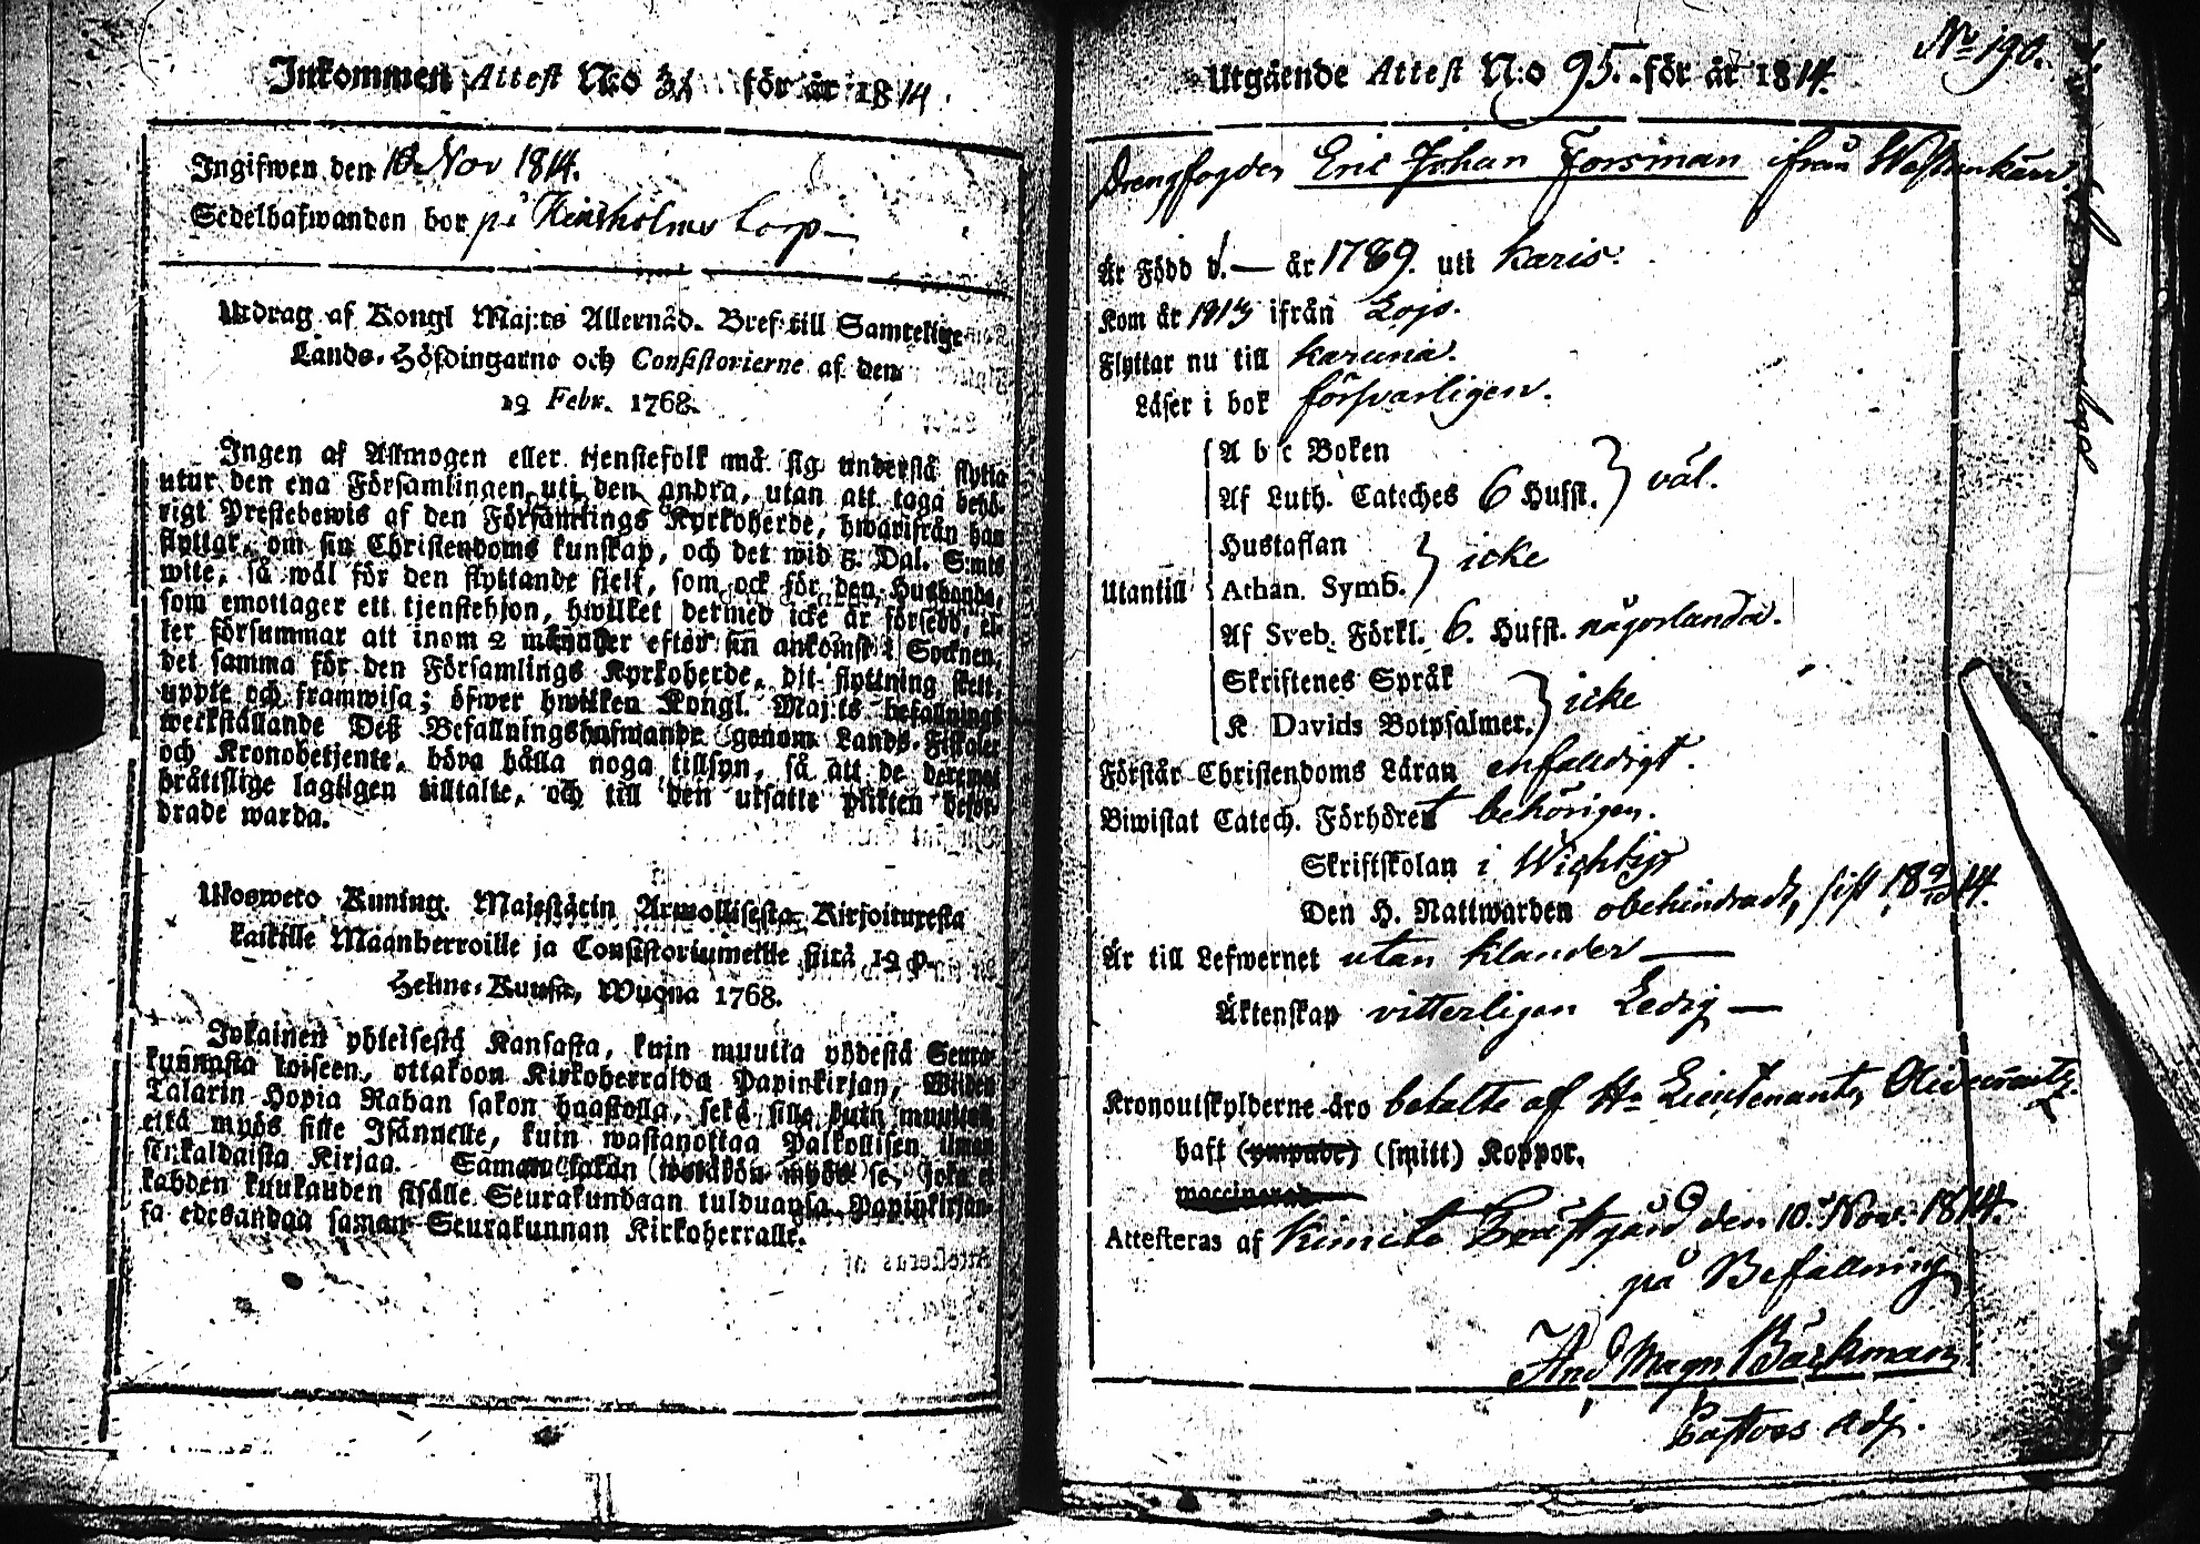 Inkommen Attest N:o 31 för år 1814.
Ingifwen den 18 Nov 1814.
Sedelhafwanden bor på torp
Utdrag af Kongl Maj:ts Allernåd. Bref till Samtelige
Lands-Höfdingarne och Consistorierne af den
19 Febr. 1768.
Ingen af Allmogen eller tjenstefolk må sig understå flytta
utur den ena Församlingen uti den andra, utan att taga behö-
rigt Prestebewis af den Församlings Kyrkoherde, hwarifrån han
flyttar, om sin Christendoms kunskap, och det wid 5 Dal. S:mts
wite, så wäl för den flyttande sjelf, som ock för den Husbonde,
som emottager ett tjenstehjon, hwilket dermed icke är försedd, el-
ler försummar att inom 2 månader efter sin ankomst i Socknen,
det samma för den Församlings Kyrkoherde, dit flyttning skett,
uppte och framwisa; öfwer hwilken Kongl. Maj:ts befallnings
werkställande Deß Befallningshafwande genom Lands-Fiskaler
och Kronobetjente, böra hålla noga tillsyn, så att de deremot
bråttslige lagligen tilltalte, och till den utsatte plikten beför-
drade warda.
Ulosweto Kuning. Majestätin Armollisesta Kirjoituxesta
kaikille Maanherroille ja Consistoriumeille siitä 19 p.
Helme-Kuusa, Wuona 1768.
Jokainen yhteisestä Kansasta, kuin muutta yhdestä Seura-
kunnasta toiseen, ottakoon Kirkoherralda Papinkirjan, Wiiden
Talarin Hopia Rahan sakon haastolla, sekä sille kuin muuttaa
että myös sille Isännelle, kuin wastanottaa Palkollisen ilman
senkaldaista Kirjaa. Saman sakon wetäkön myös se, joka ei
kahden kuukauden sisälle Seurakundaan tulduansa Papinkirjan-
sa edesandaa saman Seurakunnan Kirkoherralle.
No 190.
Utgående Attest N:o 95. för år 1814.
Drengfogden Eric Johan Forsman ifrån Westankärr
Är Född d. — år 1789. uti Karis.
Kom år 1813 ifrån Lojo.
Flyttar nu till Karuna.
Läser i bok försvarligen.
A b c Boken
Af Luth. Cateches 6 Hufst. } väl.
Hustaflan
Utantill Athan. Symb. } icke
Af Sveb. Förkl. 6. Hufst. någorlunda.
Skriftenes Språk
K Davids Botpsalmer. } icke
Förstår Christendoms Läran enfalldigt.
Biwistat Catech. Förhöret behörigen.
Skriftskolan i Wichtis
Den H. Nattwarden obehindradt, sist 18 9/10 14.
Är till Lefwernet utan klander —
Äktenskap vitterligen Ledig —
Kronoutskylderne äro betalte af Hr Lieutenant
haft (ympade) (smitt) Koppor.
waccinerad
Attesteras af Kimito Prästgård den 10. Nov. 1814.
på Befallning
And Magn Bäckman
Pastors adj.